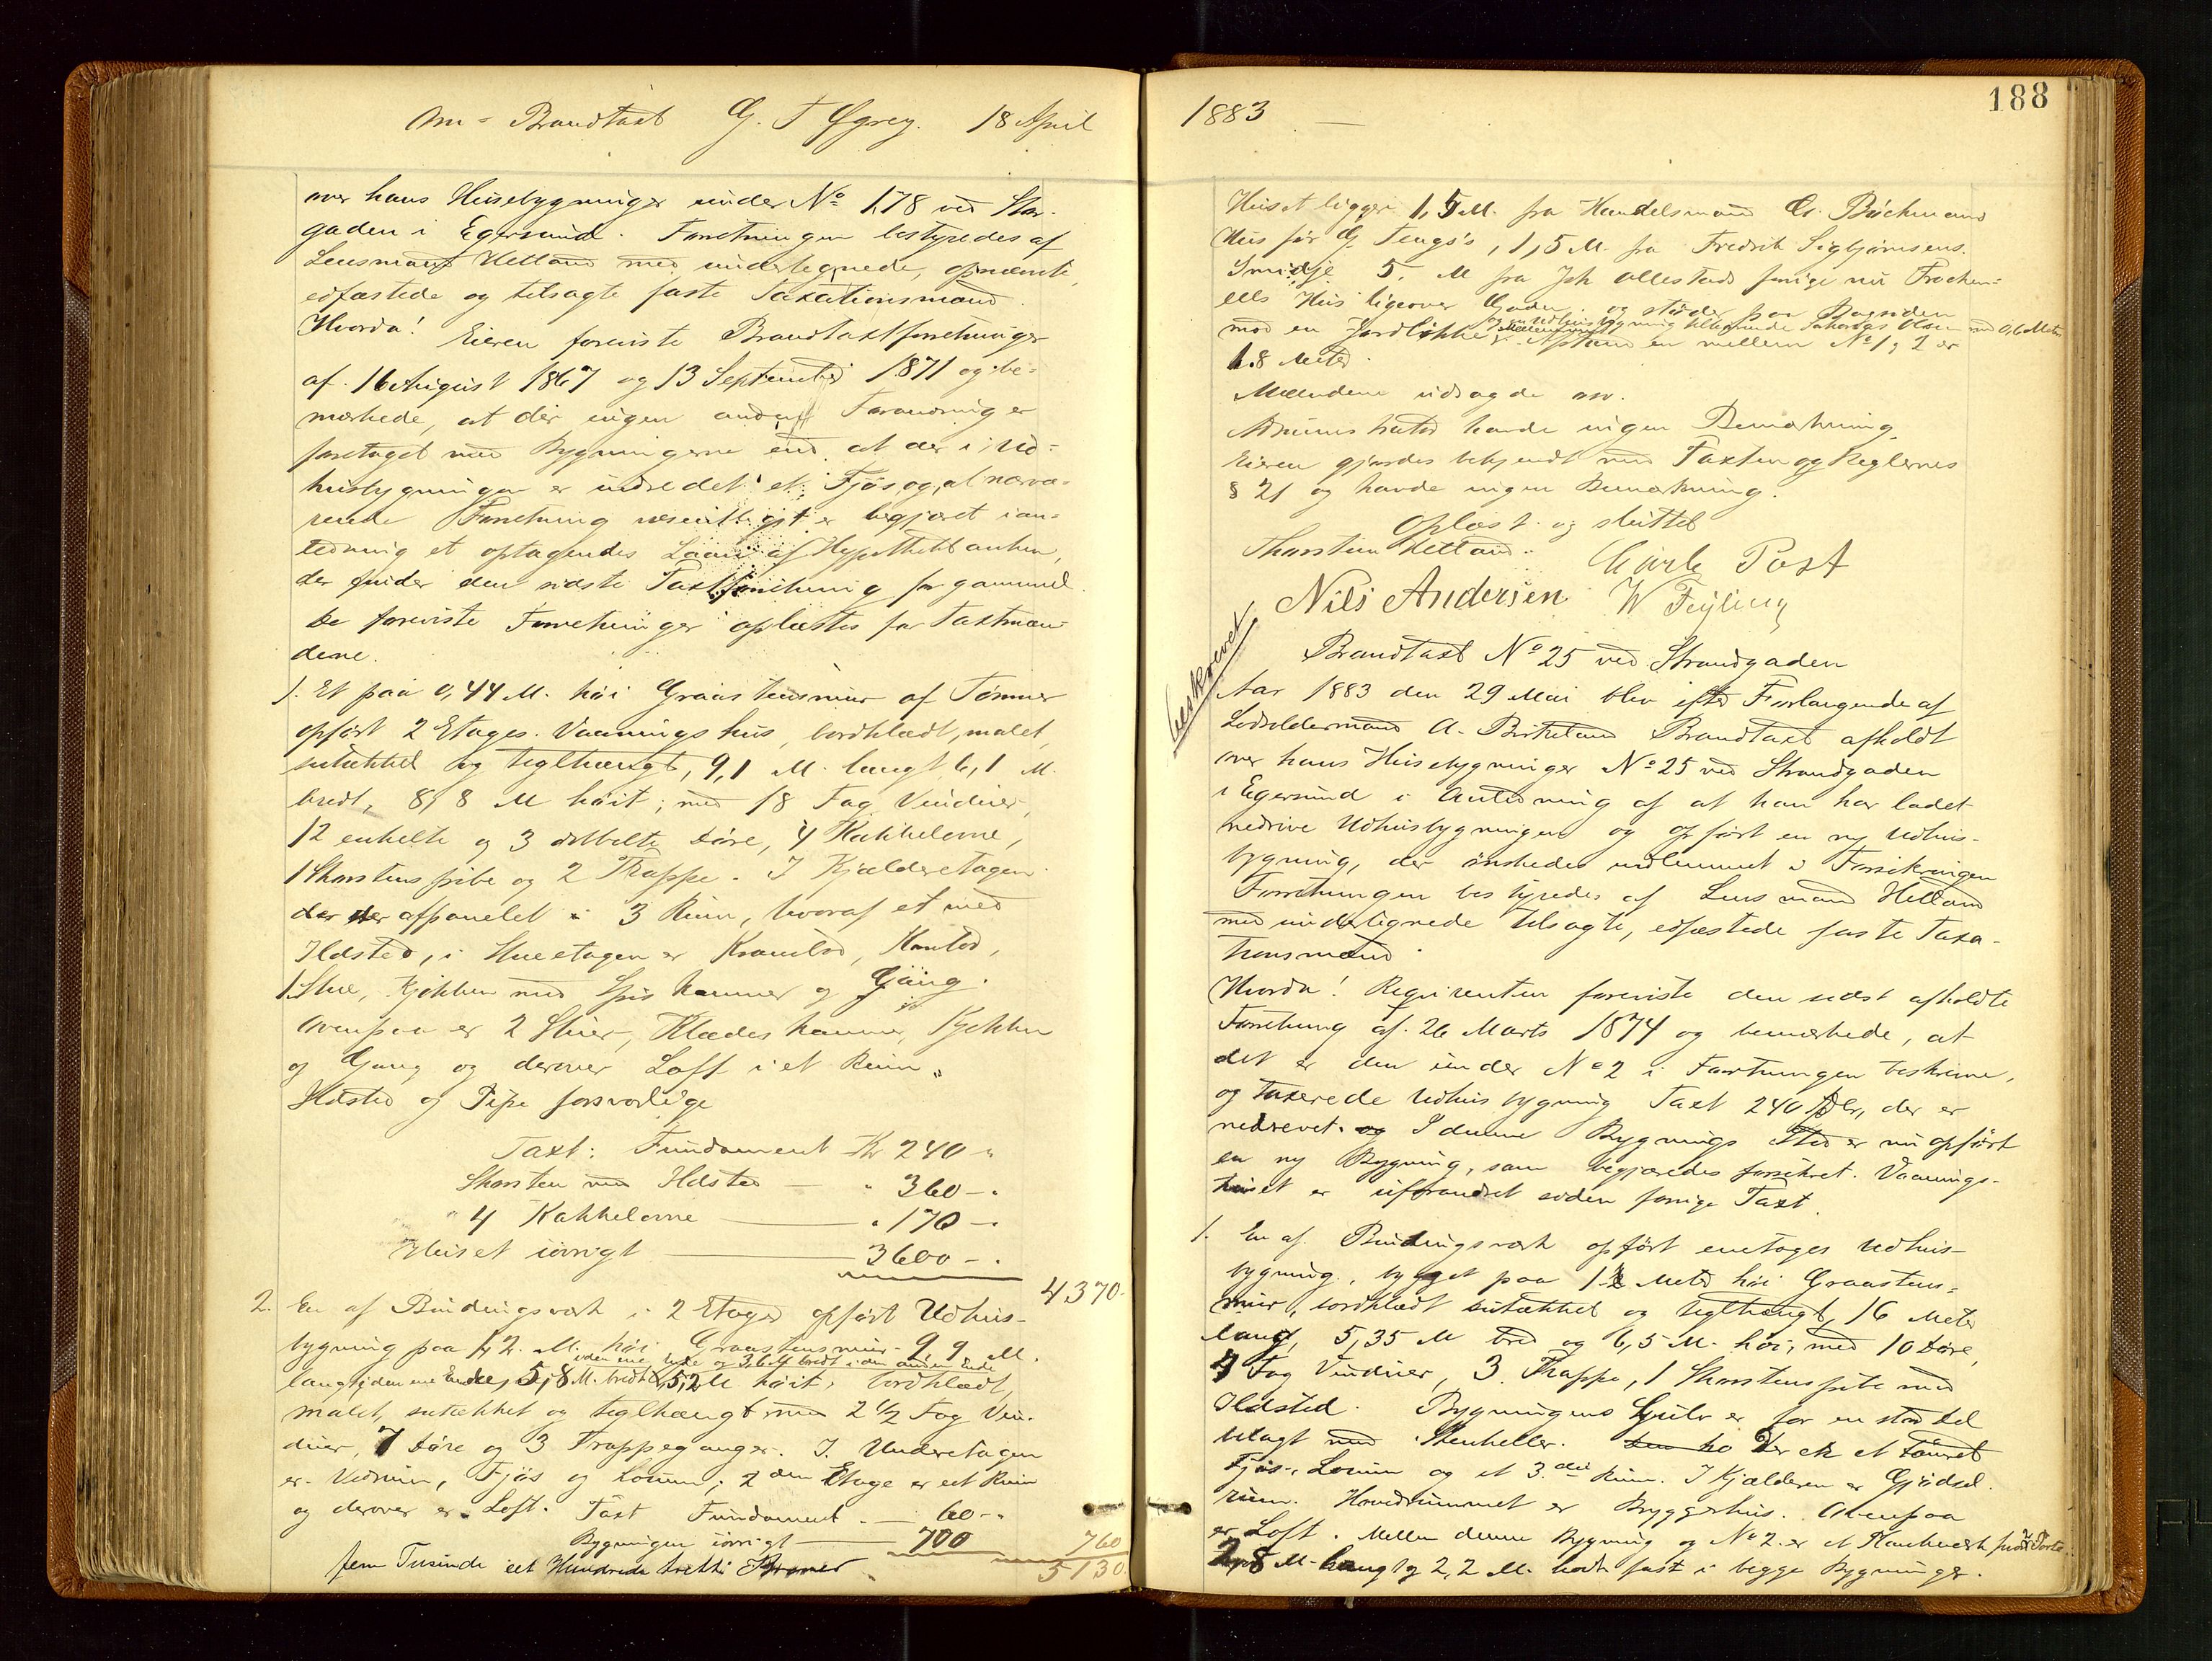 Om- Brandtaxt G. T. 18 April
over hans Husebygninger under No 178 ved Stor-
gaden i Egersund. Forretningen bestyredes af
Lensmand Helland med undertegnede, opnævnte,
edfæstede og tilsagte faste Taxationsmænd.
Hvorda! Eieren foreviste Brandtaxtforretninger
af 16 August 1867 og 13 September 1871 og be-
mærkede, at der ingen anden Forandring er
foretaget med Bygningerne end at der i Ud-
husbygningen er indredet et Fjøs, og at nærvæ-
rende Forretning væsentligst er begjæret i an-
ledning et optagendes Laan af Hypothekbanken,
der finder den sidste Taxtforretning for gammel.
De foreviste Forretninger oplæstes for Taxtmæn-
dene.
1. Et paa 0,44 M. høi Graastensmur af Tømmer
opført 2 Etages Vaaningshus, bordklædt, malet,
sutækket og teglhængt, 9,1 M. langt 6,1 M.
bredt, 8,8 M høit; med 18 Fag Vinduer,
12 enkelte og 3 dobbelte Døre, 4 Kakkelovne,
1 Skorstenspibe og 2 Trappe. I Kjælderetagen
der er afpanelet 3 Rum, hvoraf et med
Ildsted, i Stueetagen er Krambod, Kontor,
1 Stue, Kjøkken med Spiskammer og Gang.
Ovenpaa er 2 Stuer, Klædeskammer, Kjøkken
og Gang og derover Loft i et Rum.
Ildsted og Pipe forsvarlige
Taxt: Fundament Kr 240 -
Skorsten med Ildsted — " 360 -
" 4 Kakkelovne — " 170 -
Huset iøvrigt — 3600 -
4370.
2. En af Bindingsværk i 2 Etager opført Udhus-
bygning paa 1,2 M. høi Graastensmur 9,9 M.
i den ene Ende og 3,6 M bredt i den anden Ende
lang i den ene Ende, 5,8 M. bredt, 5,2 M høit, bordklædt,
malet, sutækket og teglhængt med 2 1/2 Fag Vin-
duer, 7 Døre og 3 Trappegange. I Underetagen
er Vedrum, Fjøs og Lorum; 2den Etage er eet Rum
og derover er Loft. Taxt Fundament — 60 -
Bygningen iøvrigt — 700 760
fem Tusinde eet Hundrede tretti Kroner 5130.
1883 —
188
Huset ligger 1,5 M. fra Handelsmand Chr. Böckmans
Hus før G. Tengs's, 1,5 M. fra Fredrik Sigbjørnsens
Smidje 5, M fra Joh Ollestads forrige nu Frøchen-
ells Hus ligeover Gaden og støder paa Bagsiden
og en Udhusbygning tilhørende Zakarias Olsen med 0,6 Meter
mod en Jordløkke. Afstanden mellem No 1 & 2 er
1.8 Meter.
Mændene udsagde om.
Administrator havde ingen Bemærkning.
Eieren gjordes bekjendt med Taxten og Reglernes
§ 21 og havde ingen Bemærkning.
Oplæst og sluttet
Thorstein Helland. Carl Post
Nils Andersen W Feyling
beskrevet
Brandtaxt No 25 ved Strandgaden
Aar 1883 den 29 Mai blev efter Forlangende af
Lodsoldermand A. Birkeland Brandtaxt afholdt
over hans Husebygninger No 25 ved Strandgaden
i Egersund i Anledning af at han har ladet
nedrive Udhusbygningen og opført en ny Udhus-
bygning, der ønskedes indlemmet i Forsikringen
Forretningen bestyredes af Lensmand Helland
med undertegnede tilsagte, edfæstede faste Taxa-
tionsmænd.
Hvorda! Reqvirenten foreviste den sidst afholdte
Forretning af 26 Marts 1874 og bemærkede, at
det er den under No 2 i Forretningen beskrevne,
og taxerede Udhusbygning Taxt 240 Spdlr, der er
nedrevet. og I denne Bygnings Sted er nu opført
en ny Bygning, som begjæredes forsikret. Vaanings-
huset er uforandret siden forrige Taxt.
1. En af Bindingsværk opført enetages Udhus-
bygning, bygget paa 1 Meter høi Graastens-
mur, bordklædt sutækket og teglhængt, 16 Meter
lang, 5,35 M bred og 6,5 M. høi, med 10 Døre,
4 Fag Vinduer, 3 Trappe, 1 Skorstenspibe med
Ildsted. Bygningens Gulv er for en stor Del
belagt med Stenheller. Der er et
Fjøs, Lorum og et 3.die Rum. I Kjælderen er Gjødsel-
rum. Hovedrummet er Bryggerhus. Ovenpaa
er Loft. Mellem denne Bygning og No 2 er et Plankeværk med Port
2,8 M. langt og 2,2 M. høit fast i begge Bygninger.